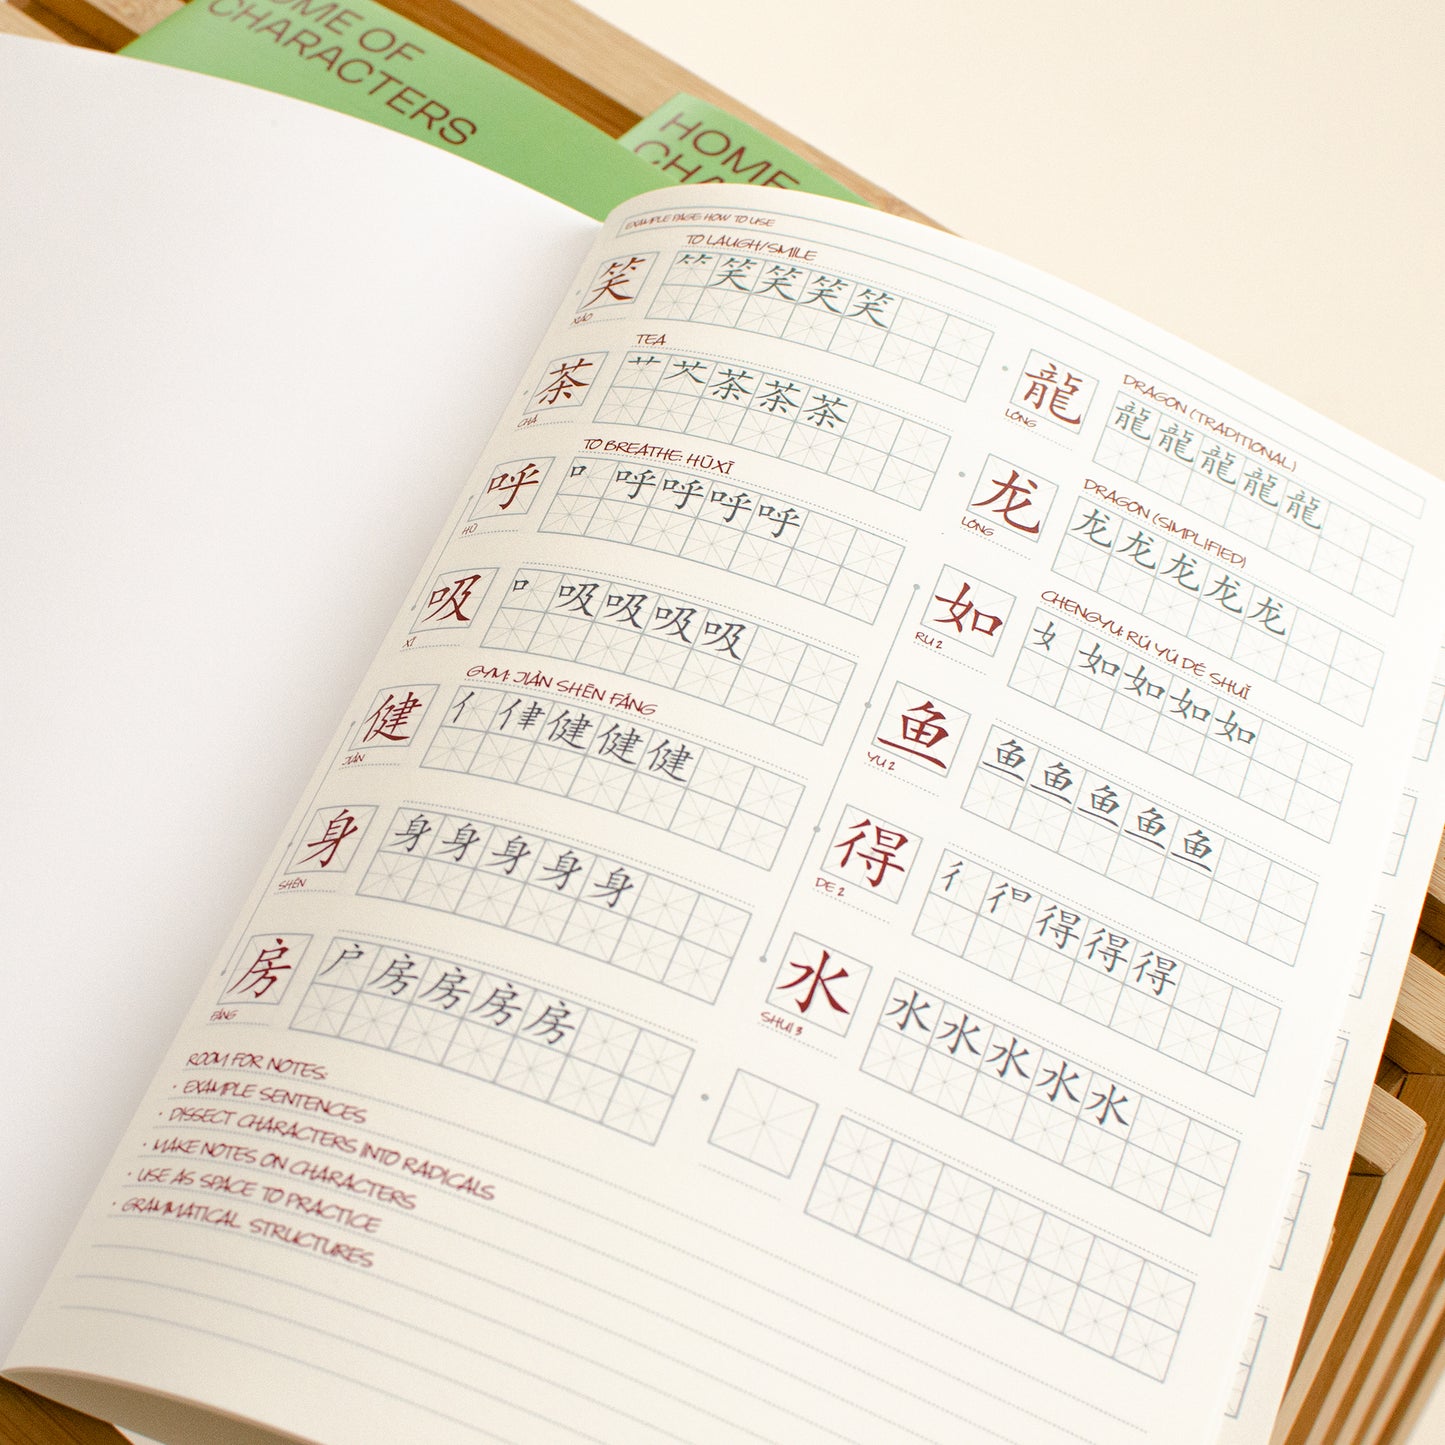 OME OF
CHARACTERS
HOME
CHA
EXAMPLE PAGE HOW TO USE
TO LAUGH/SMILE
笑 ⺮ 笑 笑 笑 笑
XIÀO
TEA
茶 艹 茶 茶 茶
CHÁ
TO BREATHE: HŪ XĪ
呼 口 呼 呼 呼 呼
HŪ
吸 口 吸 吸 吸 吸
XĪ
GYM: JIÀN SHĒN FÁNG
健 亻 健 健 健
JIÀN
身 身 身 身 身 身
SHĒN
房 户 房 房 房 房
FÁNG
ROOM FOR NOTES:
· EXAMPLE SENTENCES
· DISSECT CHARACTERS INTO RADICALS
· MAKE NOTES ON CHARACTERS
· USE AS SPACE TO PRACTICE
· GRAMMATICAL STRUCTURES
DRAGON (TRADITIONAL)
龍 龍 龍 龍 龍 龍
LÓNG
DRAGON (SIMPLIFIED)
龙 龙 龙 龙 龙 龙
LÓNG
CHENGYU: RÚ YÚ DÉ SHUǏ
如 女 如 如 如 如
RU 2
鱼 鱼 鱼 鱼 鱼 鱼
YU 2
得 彳 得 得 得
DE 2
水 水 水 水 水 水
SHUI 3